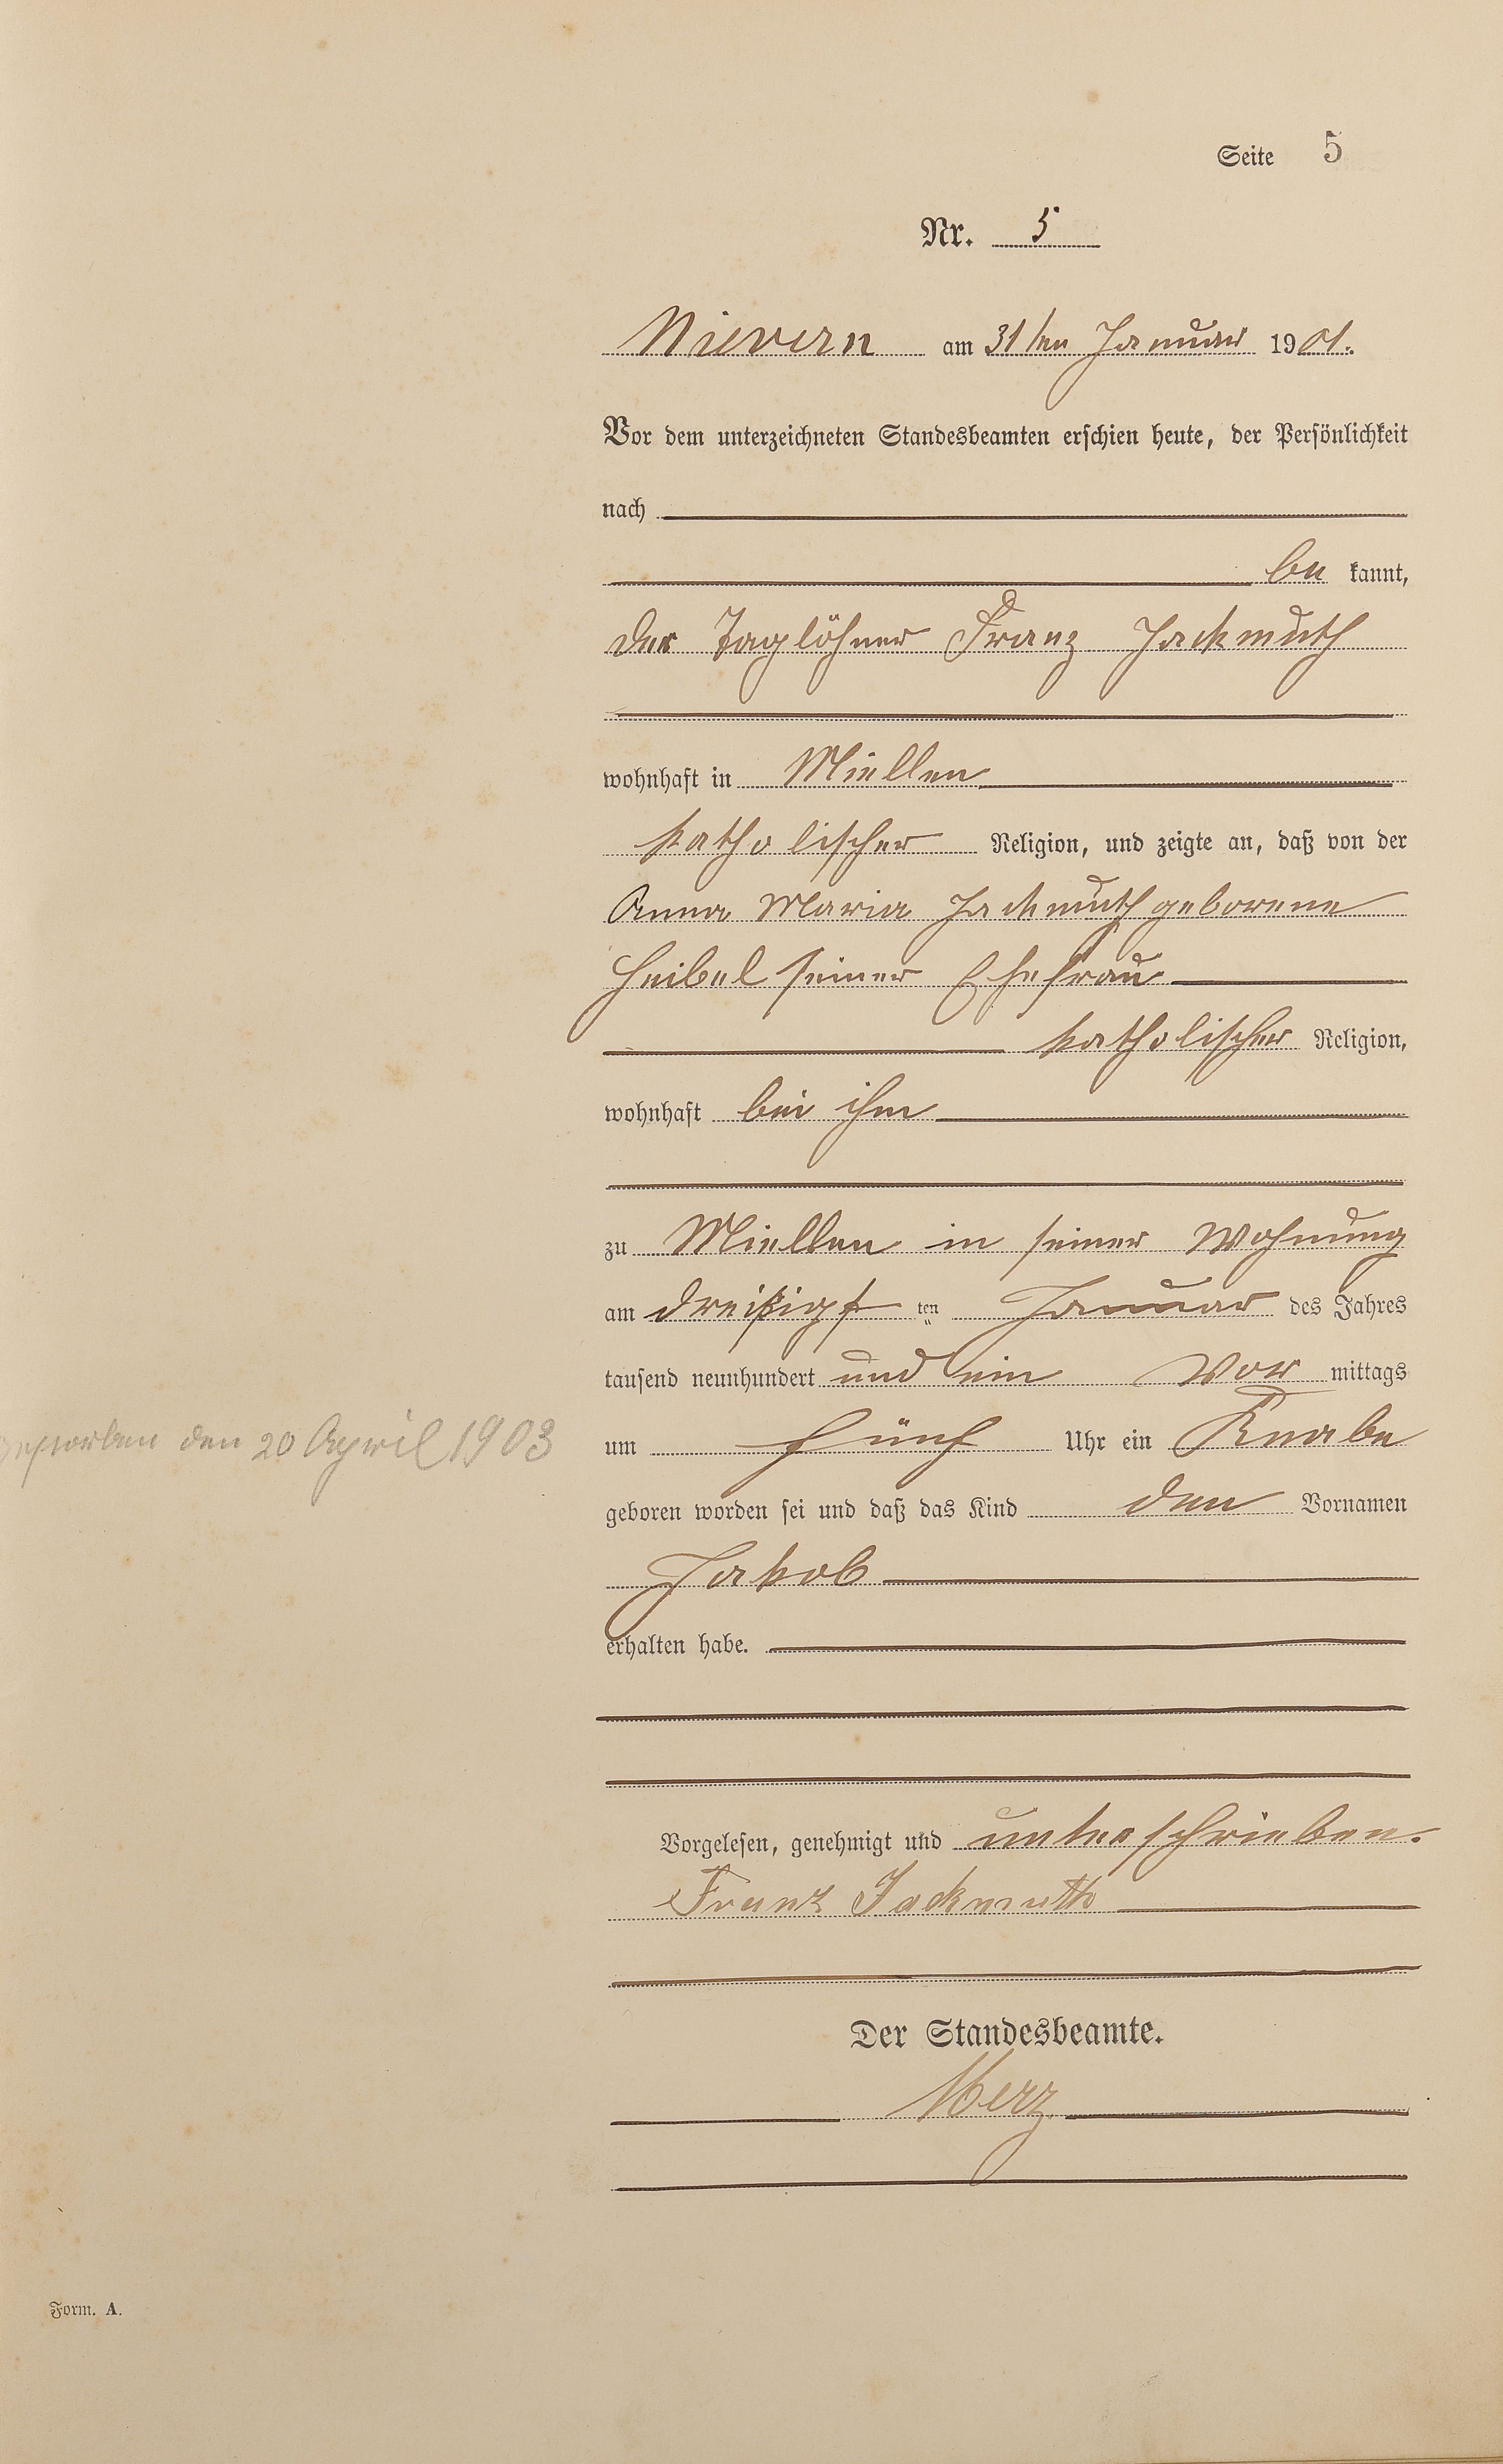 Seite 5
Nr. 5
Nievern am 31ten Januar 1901.
Vor dem unterzeichneten Standesbeamten erschien heute, der Persönlichkeit
nach
be kannt,
der Taglöhner Franz Jackmuth
wohnhaft in Miellen
katholischer Religion, und zeigte an, daß von der
Anna Maria Jackmuth geborene
Heibel seiner Ehefrau
katholischer Religion,
wohnhaft bei ihm
zu Miellen in seiner Wohnung
am dreißigsten Januar des Jahres
tausend neunhundert und ein Vor mittags
um fünf Uhr ein Knabe
gestorben den 20 April 1903
geboren worden sei und daß das Kind den Vornamen
Jakob
erhalten habe.
Vorgelesen, genehmigt und unterschrieben.
Franz Jackmuth
Der Standesbeamte.
Merz
Form. A.